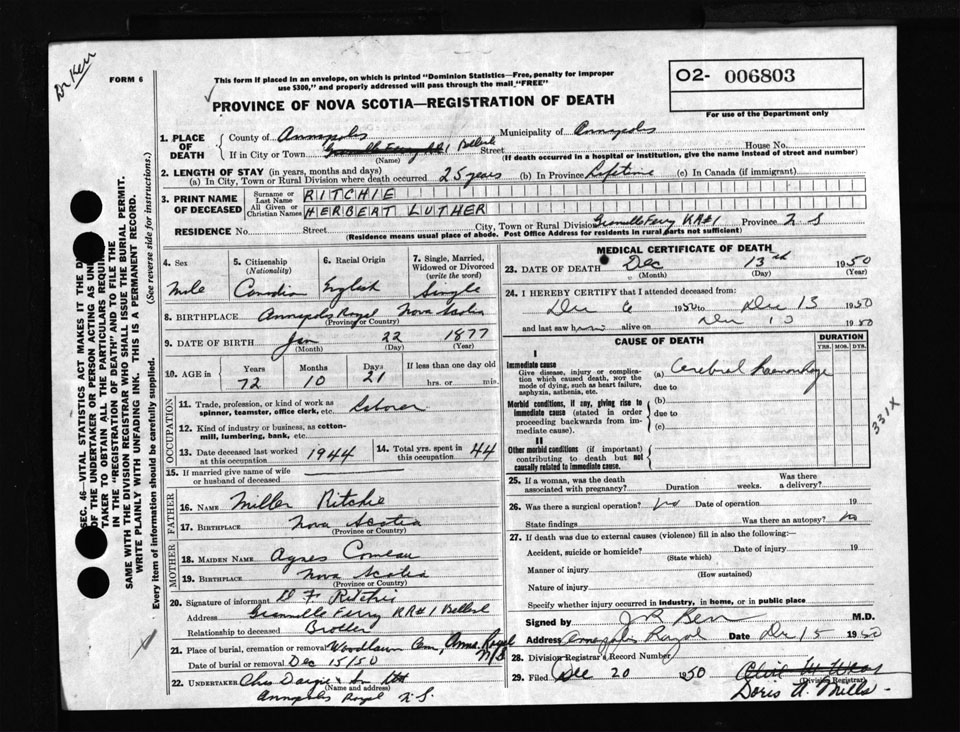 Dr Kerr
FORM 6
This form if placed in an envelope, on which is printed "Dominion Statistics—Free, penalty for improper
use $300," and properly addressed will pass through the mail "FREE"
PROVINCE OF NOVA SCOTIA—REGISTRATION OF DEATH
O2- 006803
For use of the Department only
SEC. 46—VITAL STATISTICS ACT MAKES IT THE D
OF THE UNDERTAKER OR PERSON ACTING AS UND
TAKER TO OBTAIN ALL THE PARTICULARS REQUIRE
IN THE "REGISTRATION OF DEATH" AND TO FILE THE
SAME WITH THE DIVISION REGISTRAR WHO SHALL ISSUE THE BURIAL PERMIT.
WRITE PLAINLY WITH UNFADING INK. THIS IS A PERMANENT RECORD.
Every item of information should be carefully supplied. (See reverse side for instructions.)
1. PLACE OF DEATH
County of Annapolis Municipality of Annapolis
If in City or Town Granville Ferry RR#1 Belleisle Street House No.
(Name) (If death occurred in a hospital or institution, give the name instead of street and number)
2. LENGTH OF STAY (in years, months and days)
(a) In City, Town or Rural Division where death occurred 25 years (b) In Province Lifetime (c) In Canada (if immigrant)
3. PRINT NAME OF DECEASED
Surname or Last Name RITCHIE
All Given or Christian Names HERBERT LUTHER
RESIDENCE No. Street City, Town or Rural Division Granville Ferry RR#1 Province N S
(Residence means usual place of abode. Post Office Address for residents in rural parts not sufficient)
4. Sex 5. Citizenship (Nationality) 6. Racial Origin 7. Single, Married, Widowed or Divorced (write the word)
Male Canadian English Single
8. BIRTHPLACE Annapolis Royal Nova Scotia
(Province or Country)
9. DATE OF BIRTH Jan 22 1877
(Month) (Day) (Year)
10. AGE in Years Months Days If less than one day old
72 10 21 hrs. or min.
OCCUPATION
11. Trade, profession, or kind of work as
spinner, teamster, office clerk, etc. Laborer
12. Kind of industry or business, as cotton-
mill, lumbering, bank, etc.
13. Date deceased last worked at this occupation 1944 14. Total yrs. spent in this occupation 44
15. If married give name of wife
or husband of deceased
FATHER
16. NAME Miller Ritchie
17. BIRTHPLACE Nova Scotia
(Province or Country)
MOTHER
18. MAIDEN NAME Agnes Comeau
19. BIRTHPLACE Nova Scotia
(Province or Country)
20. Signature of informant F Ritchie
Address Granville Ferry RR#1 Belleisle
Relationship to deceased Brother
21. Place of burial, cremation or removal Woodlawn Cem, Anna. Royal N.S.
Date of burial or removal Dec 15/50
22. UNDERTAKER Chas Dargie & Son Ltd
(Name and address)
Annapolis Royal N.S.
MEDICAL CERTIFICATE OF DEATH
23. DATE OF DEATH Dec 13th 1950
(Month) (Day) (Year)
24. I HEREBY CERTIFY that I attended deceased from:
Dec 6 1950 to Dec 13 1950
and last saw him alive on Dec 13 1950
CAUSE OF DEATH
DURATION
YRS. MOS. DYS.
I
Immediate cause
Give disease, injury or complication which caused death, NOT the mode of dying, such as heart failure, asphyxia, asthenia, etc.
(a) Cerebral haemorrhage
due to
Morbid conditions, if any, giving rise to immediate cause (stated in order proceeding backwards from immediate cause).
(b)
due to
(c)
331X
II
Other morbid conditions (if important) contributing to death but not causally related to immediate cause.
25. If a woman, was the death associated with pregnancy? Duration weeks. Was there a delivery?
26. Was there a surgical operation? no Date of operation 19
State findings Was there an autopsy? no
27. If death was due to external causes (violence) fill in also the following:—
Accident, suicide or homicide? Date of injury 19
(State which)
Manner of injury
(How sustained)
Nature of injury
Specify whether injury occurred in industry, in home, or in public place
Signed by J R Kerr M.D.
Address Annapolis Royal Date Dec 15 1950
28. Division Registrar's Record Number
29. Filed Dec 20 1950
(Division Registrar)
Doris A. Mills